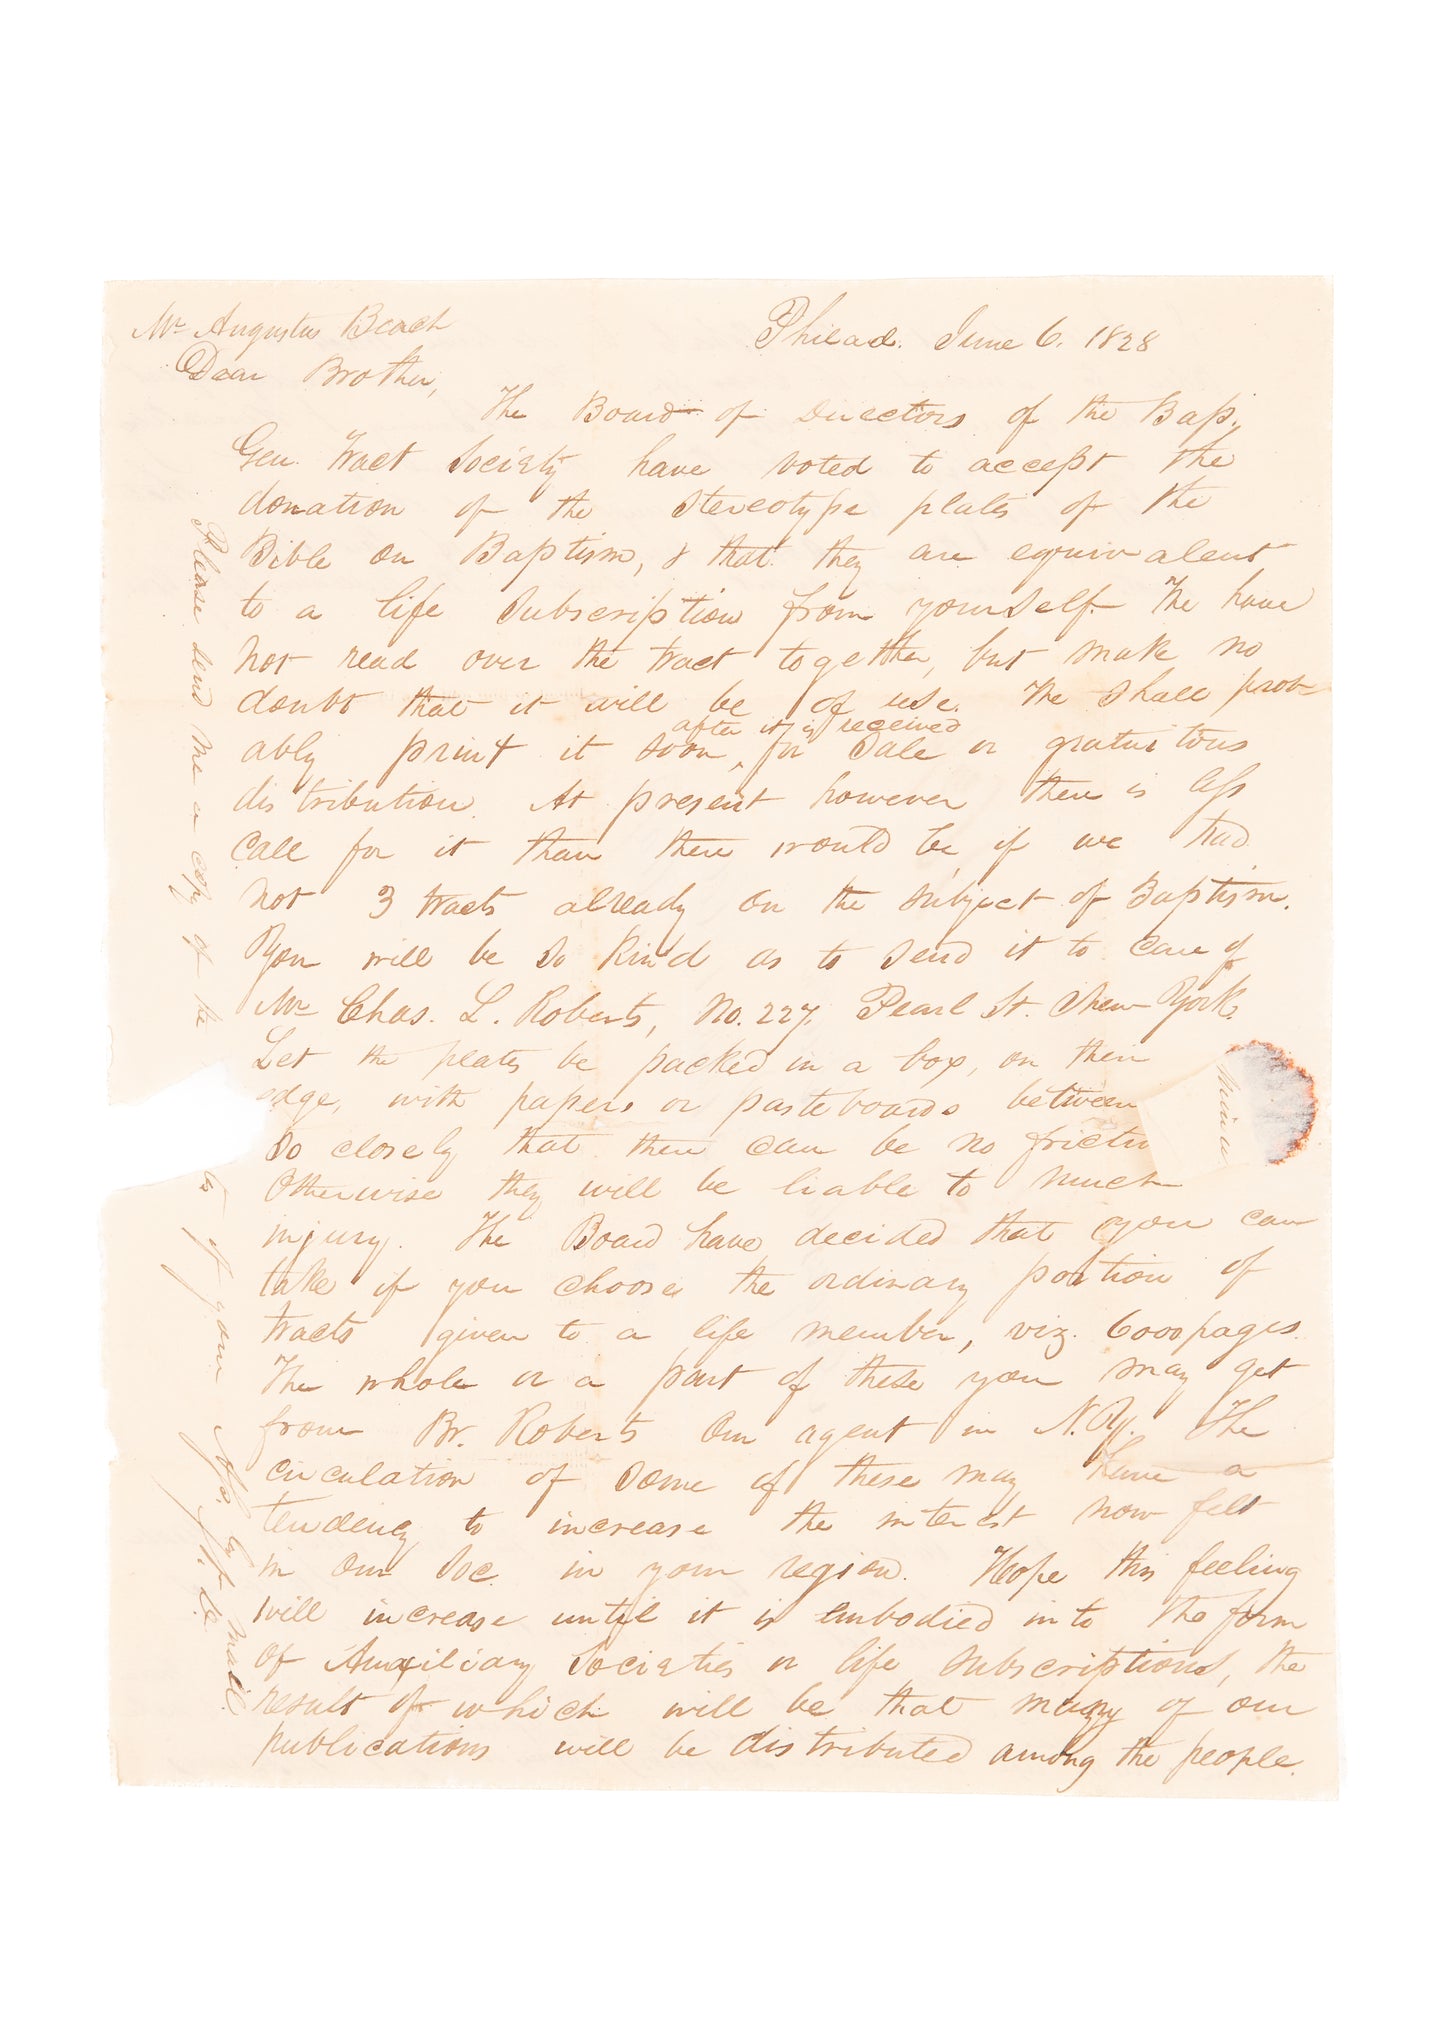 Mr Augustus Beach
Philad. June 6. 1828
Dear Brother,
The Board of Directors of the Bap.
Gen. Tract Society have voted to accept the
donation of the stereotype plates of the
Bible on Baptism, & that they are equivalent
to a life subscription from yourself. We have
not read over the tract together, but make no
doubt that it will be of use. We shall prob-
after it is received
ably print it soon ‸ for sale or gratuitous
distribution. At present however there is less
call for it than there would be, if we had
not 3 tracts already on the subject of Baptism.
You will be so kind as to send it to care of
Mr Chas. L. Roberts, No. 227. Pearl St. New York.
Let the plates be packed in a box, on their
edge, with papers or pasteboards between
so closely that there can be no frictio
Otherwise they will be liable to much
injury. The Board have decided that you can
take if you choose the ordinary portion of
tracts given to a life member, viz. 6000 pages.
The whole or a part of these you may get
from Br. Roberts our agent in N.Y. The
circulation of some of these may have a
tendency to increase the interest now felt
in our Soc. in your region. Hope this feeling
will increase until it is embodied into the form
of Auxiliary Societies or life subscriptions, the
result of which will be that many of our
publications will be distributed among the people.
Please send me a copy of the
of your
by mail.